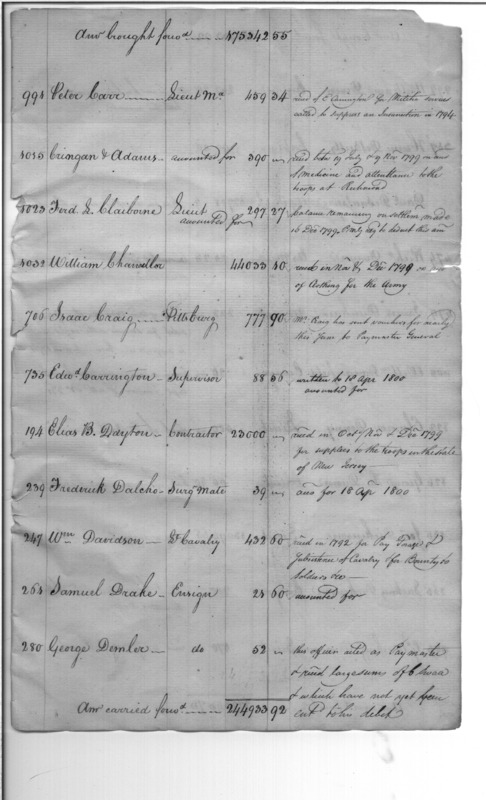 Amt brought forwd 175342 55
994 Peter Carr Lieut Ma 459 34 recd of E Carrington for Militia services
called to suppress an Insurrection in 1794
1015 Cringan & Adams accounted for 390 recd betw 29 July & 9 Nov 1799 on
of Medicine and attendance to the
troops at Richmond
1023 Ferd L. Claiborne Lieut 297 27 balance remaining on settlemt made
accounted for 16 Decr 1799. P Only to deduct this
1032 William Chancellor 44033 40 recd in Nov & Dec 1799
of Clothing for the Army
706 Isaac Craig Pittsburg 777 90 Mr Craig has sent vouchers for nearly
this sum to Paymaster General
735 Edwd Carrington Supervisor 88 56 written to 18 Apr 1800
accounted for
194 Elias B. Dayton Contractor 23000 recd in Octr Nov & Dec 1799
for supplies to the troops in the State
of New Jersey
239 Frederick Dalcho Surgn Mate 39 for 18 Apr 1800
247 Wm Davidson Lt Cavalry 432 60 recd in 1792 for Pay Forage &
Subsistence of Cavalry & for Bounty to
Soldiers &c
264 Samuel Drake Ensign 24 60 accounted for
280 George Demler do 52 this officer acted as Paymaster
& recd large sums of C Swan
& which have not yet been
to his debit
Amt carried forwd 244933 92